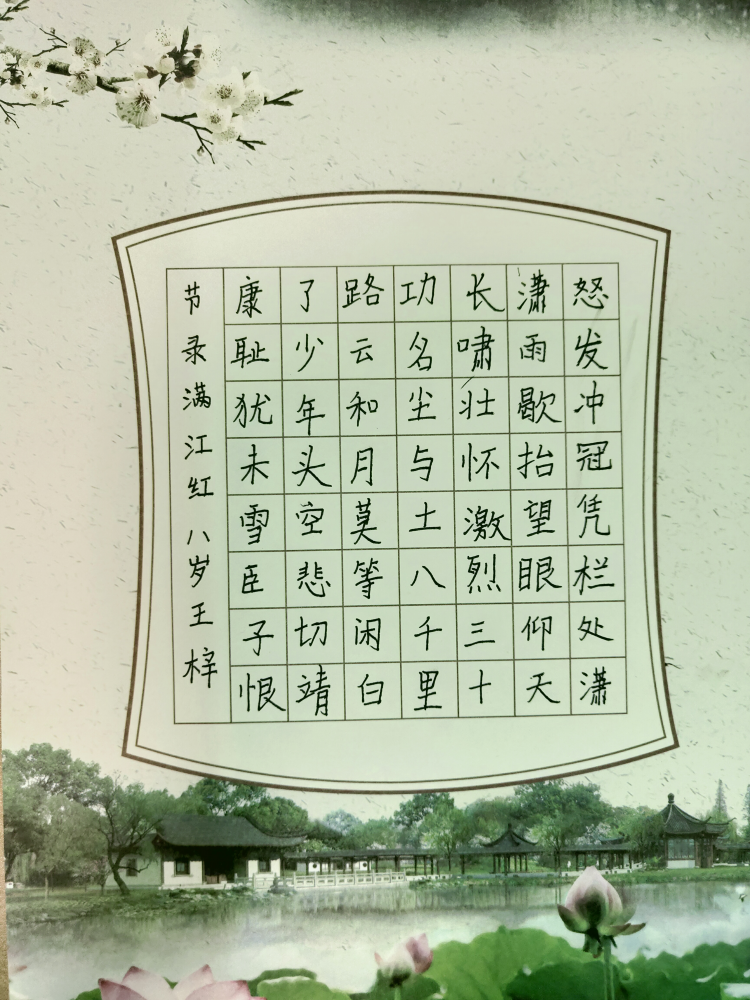 怒发冲冠凭栏处潇
潇雨歇抬望眼仰天
长啸壮怀激烈三十
功名尘与土八千里
路云和月莫等闲白
了少年头空悲切靖
康耻犹未雪臣子恨
节录满江红八岁王梓